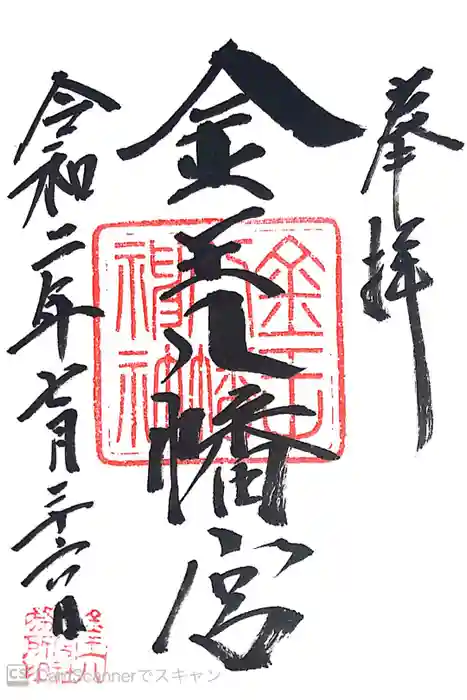 奉拝
金王八幡宮
令和二年七月二十六日
金王八幡神社
CS CamScannerでスキャン